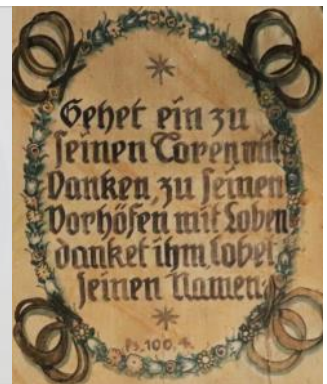 Gehet ein zu
seinen Toren mit
Danken, zu seinen
Vorhöfen mit Loben
danket ihm, lobet
seinen Namen.
Ps. 100, 4.